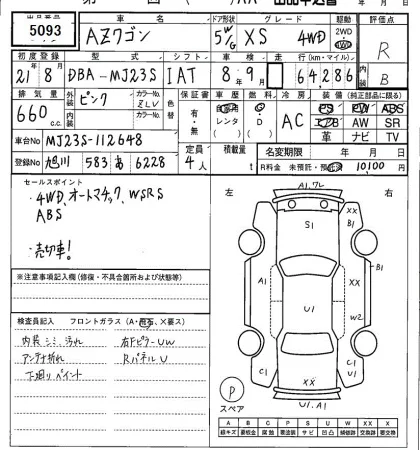 出品番号
5093
車名
AZワゴン
ドア形状
5 W/G
グレード
XS 4WD
駆動
2WD
4WD
評価点
R
内 B
初度登録
21 / 8
型式
DBA-MJ23S
シフト
IAT
車検
8年9月
走行 (km・マイル)
64,286
排気量
660 c.c.
外装 ピンク
内装
カラーNo.
ZLV
カラーNo.
色替
保証書
有・無
車歴
自家用
レンタ
燃料
G
D
冷房
AC
装備 (純正部品に限る)
PS PW
エアB AW SR
革 ナビ TV
車台No. MJ23S-112648
登録No. 旭川 583 あ 6228
定員
4人
積載量
t
名変期限 年 月 日
R料金 未預託・預託済 10100 円
セールスポイント
・4WD、オートマチック、WSRS
ABS
・売切車!
左 右
A1.ワレ
XX
B1
S1
A1
B1
XX
U1
W2
C1
C1
XX
U1.A1
P
スペア
※注意事項記入欄(修復・不具合箇所および状態等)
検査員記入 フロントガラス(A・飛石、X要ス)
内装シミ、汚れ 右FピラーUW
アンテナ折れ RパネルU
下廻りペイント
A B C P S U W X XX
線キズ 要板金 腐蝕 要塗装 サビ 凹凸 補修跡 要交換 交換跡